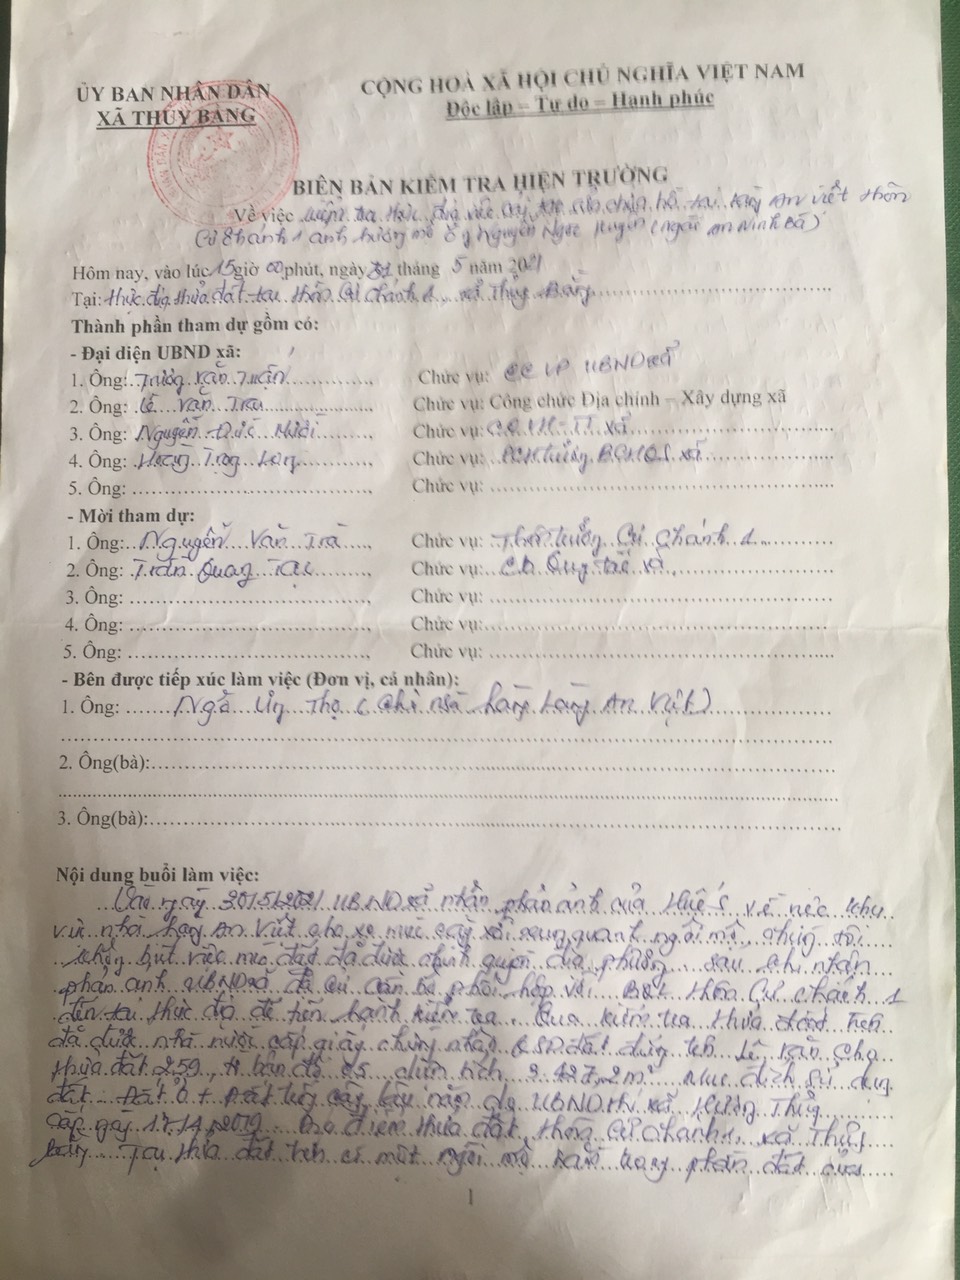 ỦY BAN NHÂN DÂN
XÃ THỦY BẰNG
CỘNG HOÀ XÃ HỘI CHỦ NGHĨA VIỆT NAM
Độc lập – Tự do – Hạnh phúc
BIÊN BẢN KIỂM TRA HIỆN TRƯỜNG
Về việc kiểm tra thực địa việc
Cư Chánh 1 ảnh hưởng mộ ông Nguyễn Ngọc
Hôm nay, vào lúc 15 giờ 00 phút, ngày 31 tháng 5 năm 2021
Tại: thực địa thửa đất tại thôn Cư Chánh 1, xã Thủy Bằng
Thành phần tham dự gồm có:
- Đại diện UBND xã:
1. Ông: Trương Văn Tuấn Chức vụ: CC VP UBND xã
2. Ông: Lê Văn Chức vụ: Công chức Địa chính – Xây dựng xã
3. Ông: Nguyễn Đức Chức vụ: xã
4. Ông: Hoàng Trọng Long Chức vụ: BCHQS xã
5. Ông: Chức vụ:
- Mời tham dự:
1. Ông: Nguyễn Văn Trà Chức vụ: Thôn trưởng Cư Chánh 1
2. Ông: Trần Quang Chức vụ: xã
3. Ông: Chức vụ:
4. Ông: Chức vụ:
5. Ông: Chức vụ:
- Bên được tiếp xúc làm việc (Đơn vị, cá nhân):
1. Ông: Thọ (chủ nhà hàng An Việt)
2. Ông(bà):
3. Ông(bà):
Nội dung buổi làm việc:
Vào ngày 30/5/2021 UBND xã nhận phản ánh của Huế S về việc khu
vực nhà hàng An Việt cho xe múc cày xới xung quanh ngôi mộ, chúng tôi
không biết việc múc đất đã được chính quyền địa phương sau khi nhận
phản ánh UBND xã đã cử cán bộ phối hợp với thôn Cư Chánh 1
đến tại thực địa để tiến hành kiểm tra. Qua kiểm tra thửa đất trên
đã được nhà nước cấp giấy chứng nhận QSD đất đứng tên Lê Văn
thửa đất 259, tờ bản đồ 25 diện tích 3.427,2m² Mục đích sử dụng
đất: Đất ở + Đất trồng cây lâu năm do UBND thị xã Hương Thủy
cấp ngày 17/4/2019 Địa điểm thửa đất, thôn Cư Chánh 1, xã Thủy
Bằng. Tại thửa đất trên có một ngôi mộ nằm trong phần đất
1